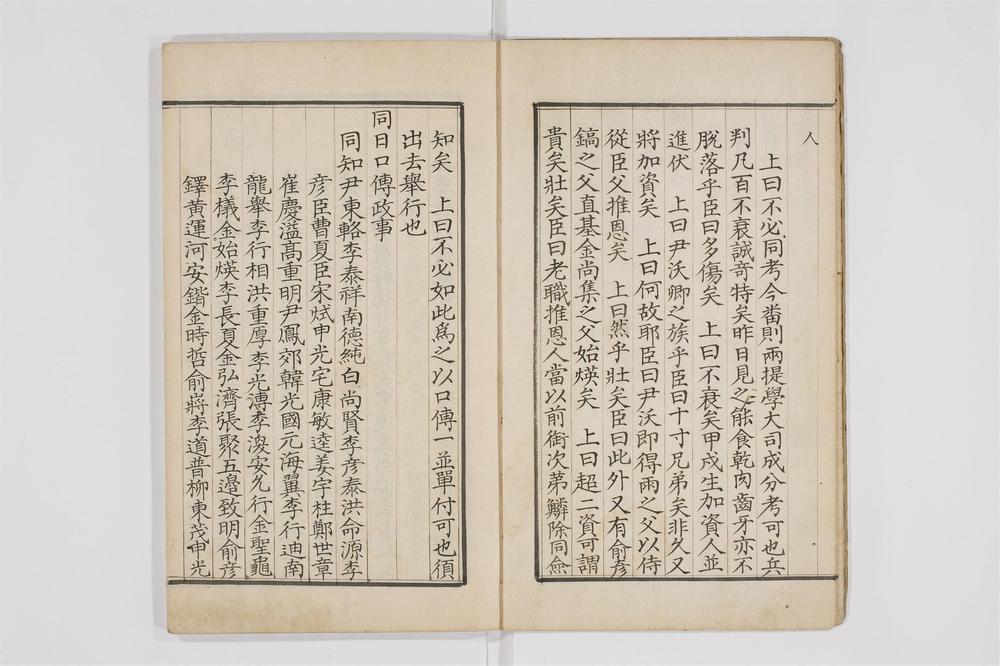 人
上曰不必同考今番則兩提學大司成分考可也兵
判凡百不衰誠奇特矣昨日見之能食乾肉齒牙亦不
脫落乎臣曰多傷矣 上曰不衰矣甲戌生加資人並
進伏 上曰尹沃卿之族乎臣曰十寸兄弟矣非久又
將加資矣 上曰何故耶臣曰尹沃即得雨之父以侍
從臣父推恩矣 上曰然乎壯矣臣曰此外又有俞彦
鎬之父直基金尚集之父始煐矣 上曰超二資可謂
貴矣壯矣臣曰老職推恩人當以前銜次第鱗除同僉
知矣 上曰不必如此爲之以口傳一並單付可也須
出去舉行也
同日口傳政事
同知尹東輅李泰祥南德純白尚賢李彦泰洪命源李
彦臣曹夏臣宋烒申光宅康敏逵姜宇柱鄭世章
崔慶溢高重明尹鳳郊韓光國元海翼李行迪南
龍舉李行相洪重厚李光溥李浚安允行金聖龜
李檥金始煐李長夏金弘濟張聚五邉致明俞彦
鐸黃運河安鍇金時哲俞㢡李道普柳東茂申光